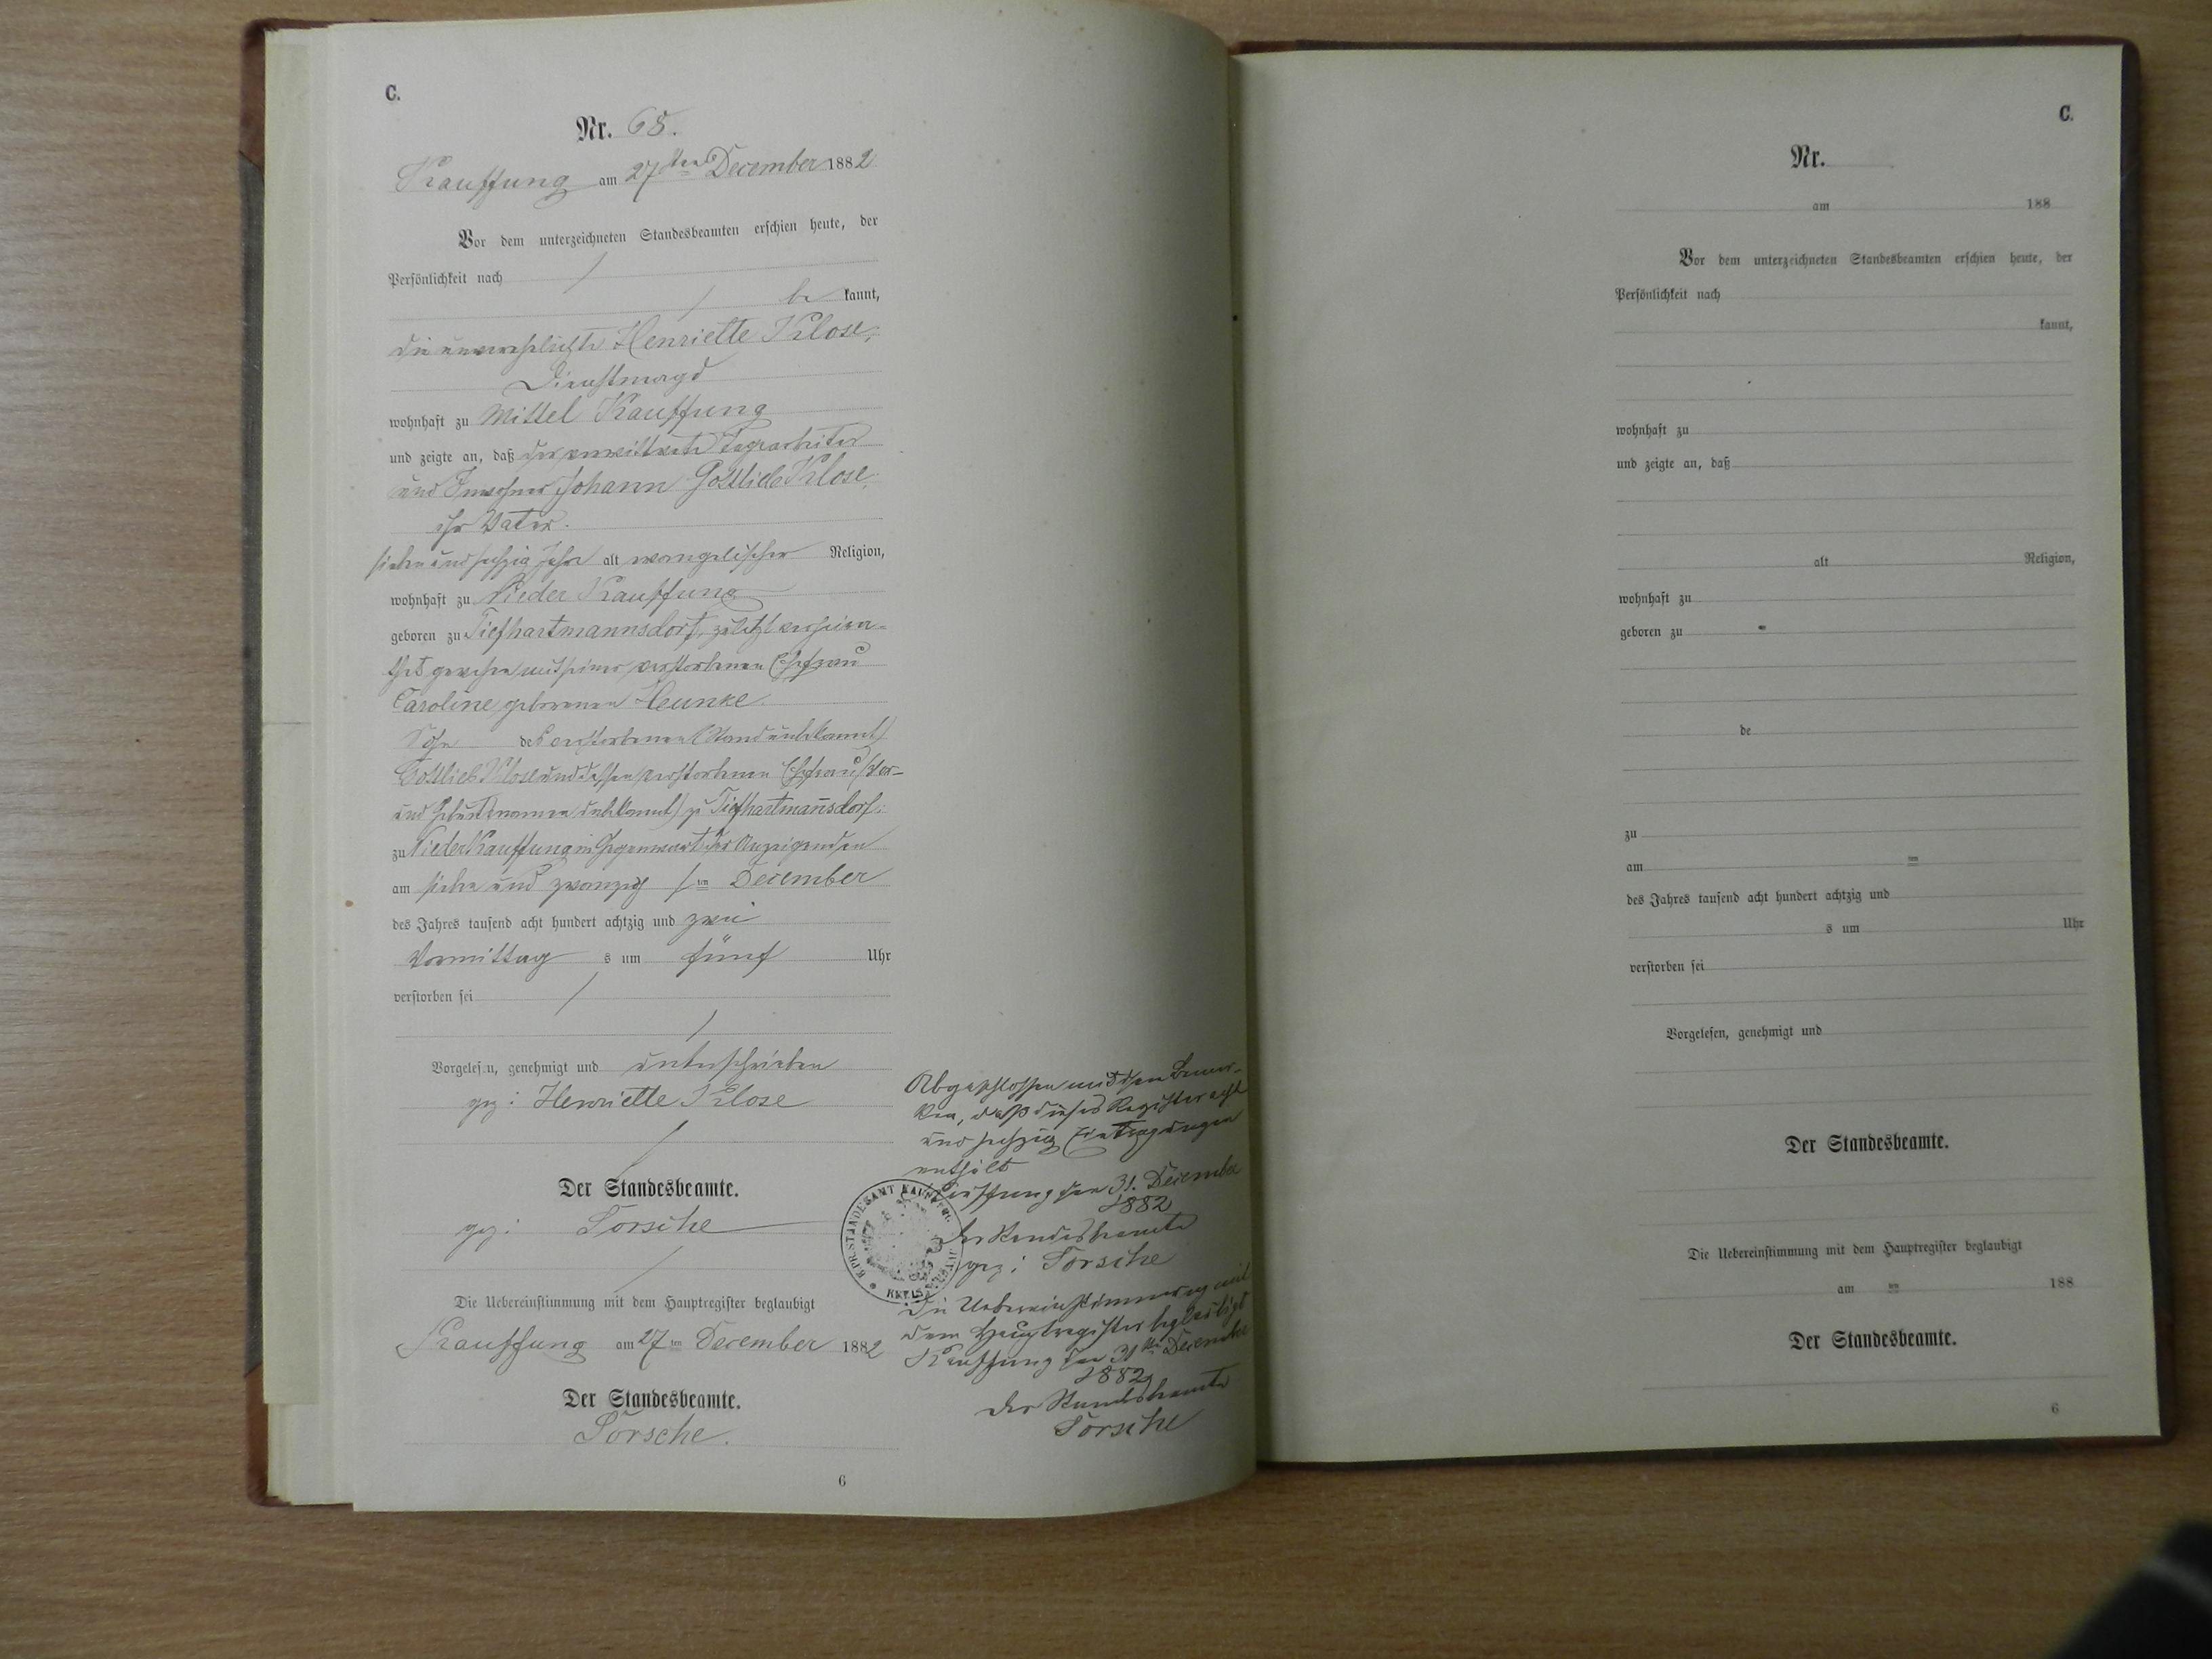 C.
Nr. 68.
Kauffung am 27ten December 1882
Vor dem unterzeichneten Standesbeamten erschien heute, der
Persönlichkeit nach
be kannt,
die unverehelichte Henriette Klose,
Dienstmagd
wohnhaft zu Mittel Kauffung
und zeigte an, daß der verwittwete Tagearbeiter
und Inwohner Johann Gottlieb Klose,
ihr Vater.
sieben und sechzig Jahre alt evangelischer Religion,
wohnhaft zu Nieder Kauffung
geboren zu Tiefhartmannsdorf, zuletzt verheira-
thet gewesen mit seiner verstorbenen Ehefrau
Caroline, geborenen Heunke.
Sohn des verstorbenen (Stand unbekannt)
Gottlieb Klose und dessen verstorbenen Ehefrau (Vor-
und Geburtsnamen unbekannt) zu Tiefhartmañsdorf.
zu Nieder Kauffung in Gegenwart der Anzeigenden
am sieben und zwanzig ten December
des Jahres tausend acht hundert achtzig und zwei
Vormittag s um fünf Uhr
verstorben sei
Vorgelesen, genehmigt und unterschrieben
gez: Henriette Klose
Der Standesbeamte.
gez: Torsche
Die Uebereinstimmung mit dem Hauptregister beglaubigt
Kauffung am 27 ten December 1882
Der Standesbeamte.
Torsche.
6
Abgeschlossen mit dem Bemer-
ken, daß dieses Register acht
und sechzig Eintragungen
enthält
Kauffung den 31. December
1882
Der Standesbeamte
gez: Torsche
K. PR. STANDESAMT KAUFFUNG
Die Uebereinstimmung mit
dem Hauptregister beglaubigt
Kauffung den 31ten December
1882
Der Standesbeamte
Torsche
C.
Nr.
am 188
Vor dem unterzeichneten Standesbeamten erschien heute, der
Persönlichkeit nach
kannt,
wohnhaft zu
und zeigte an, daß
alt Religion,
wohnhaft zu
geboren zu
de
zu
am ten
des Jahres tausend acht hundert achtzig und
s um Uhr
verstorben sei
Vorgelesen, genehmigt und
Der Standesbeamte.
Die Uebereinstimmung mit dem Hauptregister beglaubigt
am ten 188
Der Standesbeamte.
6